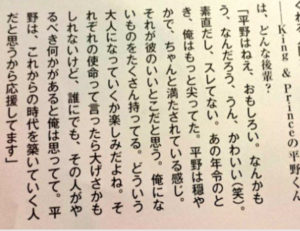 ―King & Princeの平野くん
は、どんな後輩？
「平野はねえ、おもしろい。なんかも
う、なんだろう、うん、かわいい(笑)。
素直だし、スレてない。あの年令のと
き、俺はもっと尖ってた。平野は穏や
かで、ちゃんと満たされている感じ。
それが彼のいいとこだと思う。俺にな
いものをたくさん持ってる。どういう
大人になっていくか楽しみだよね。そ
れぞれの使命って言ったら大げさかも
しれないけど、誰にでも、その人がや
るべき何かがあると俺は思ってて。平
野は、これからの時代を築いていく人
だと思うから応援してます」